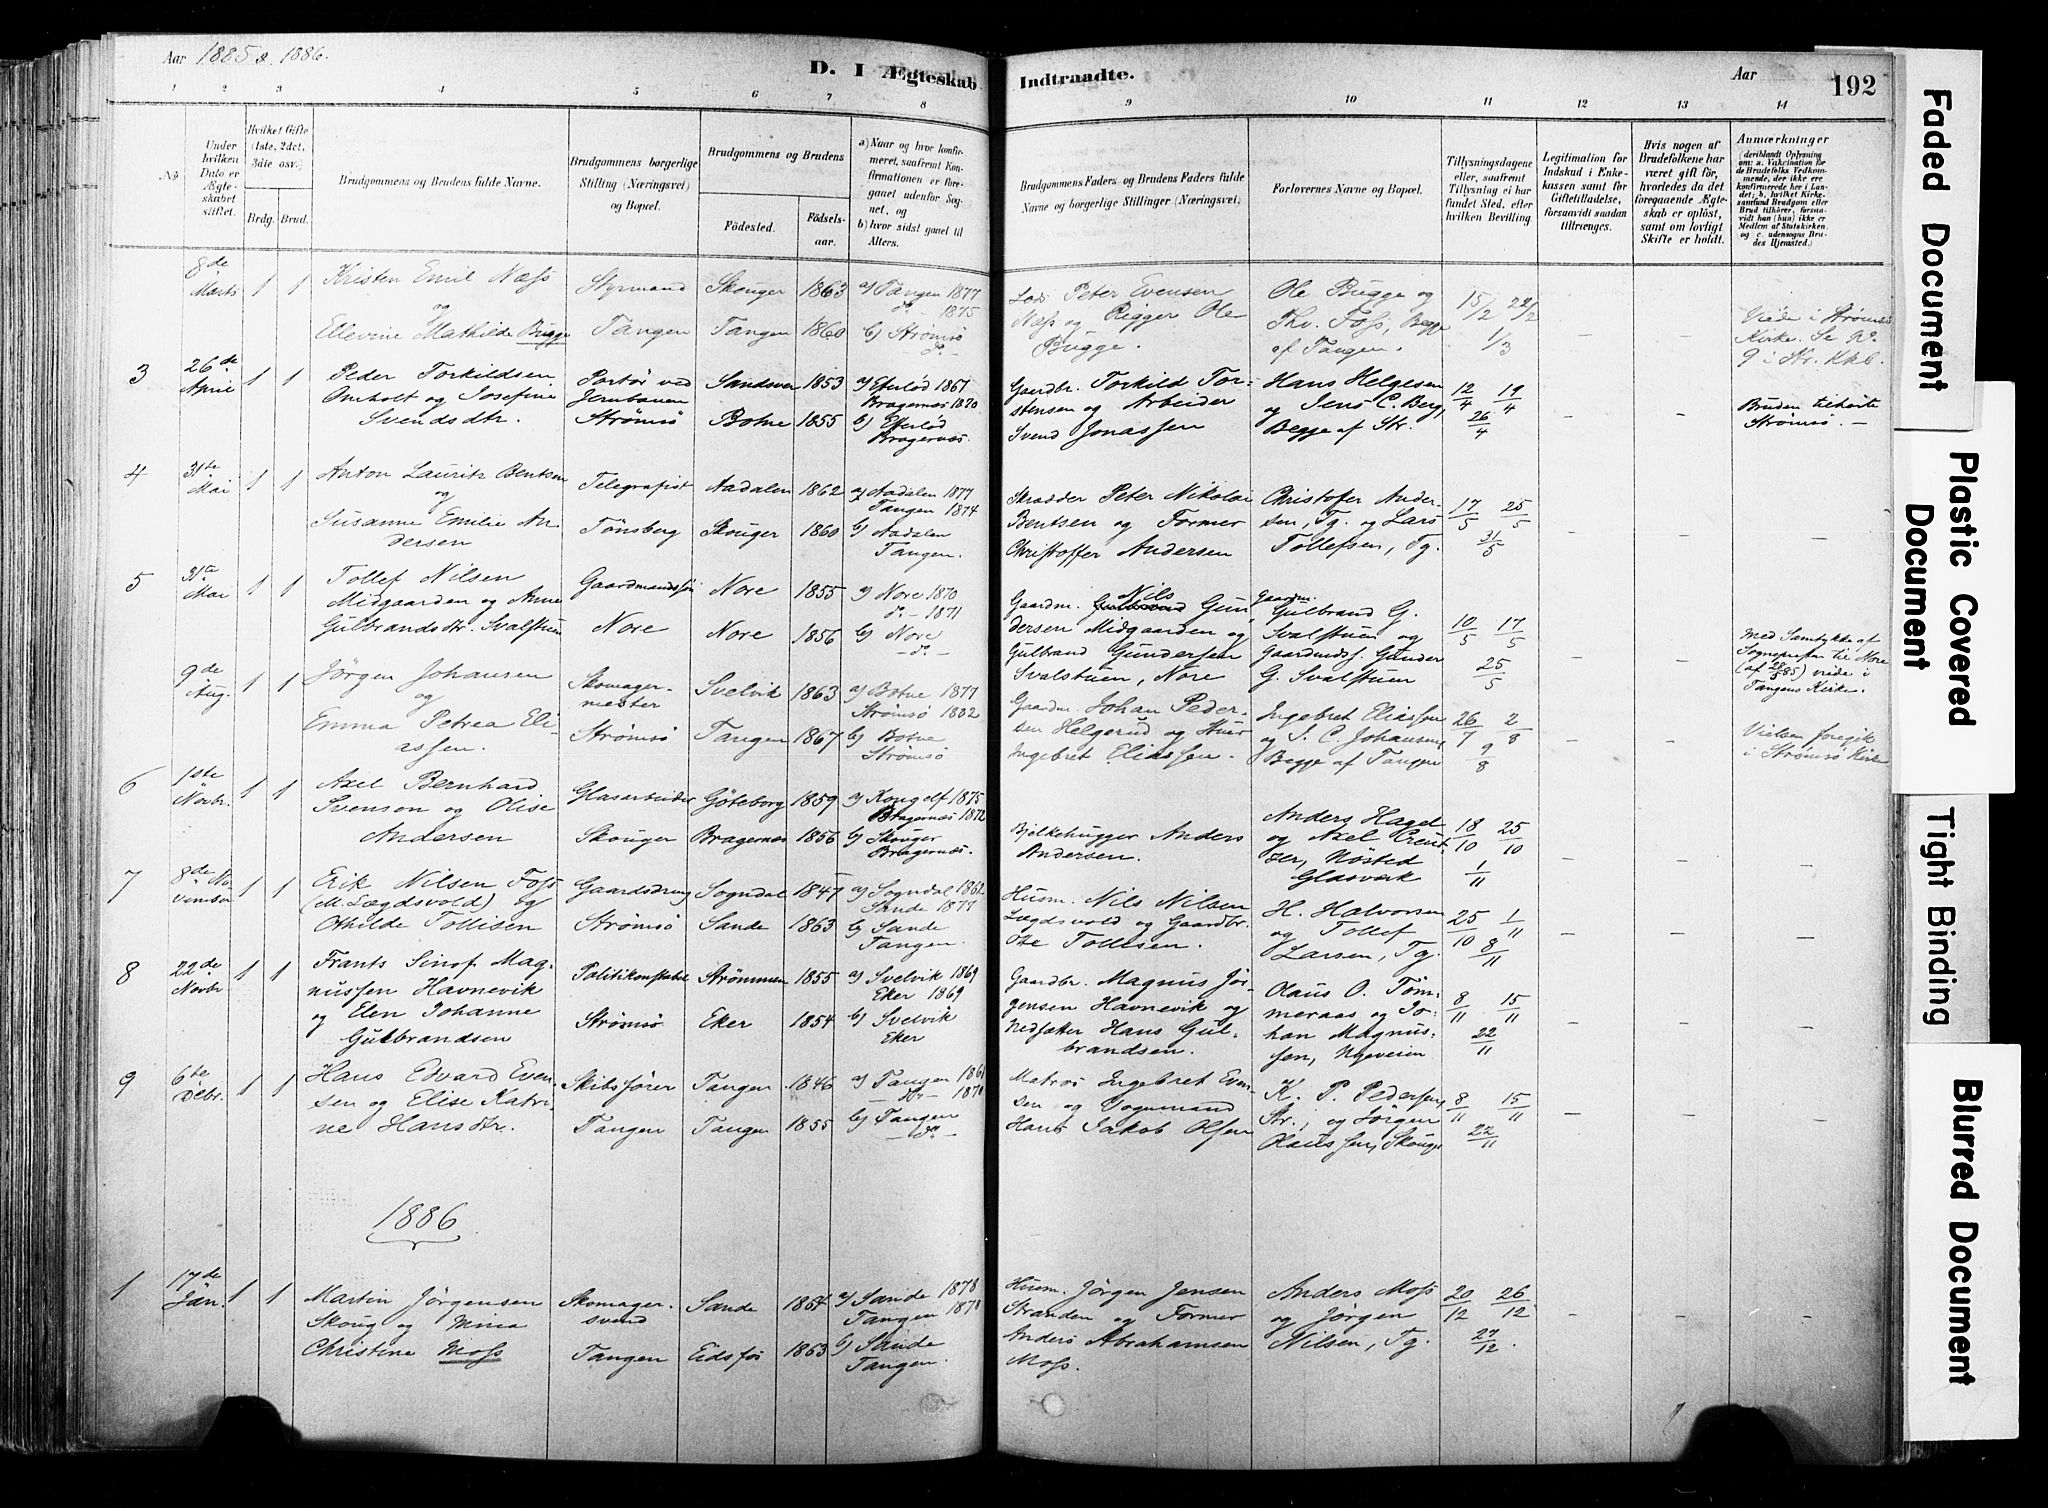 Aar 1885 & 1886.
D. I Ægteskab
Indtraadte.
Aar
192
1 2 3 4 5 6 7 8 9 10 11 12 13 14
No
Under hvilken Dato er Ægteskabet stiftet.
Hvilket Gifte (1ste, 2det, 3die osv.)
Brdg. Brud.
Brudgommens og Brudens fulde Navne.
Brudgommens borgerlige Stilling (Næringsvei) og Bopæl.
Brudgommens og Brudens
Fødested.
Fødselsaar.
a) Naar og hvor konfirmeret, saafremt Konfirmationen er foregaaet udenfor Sognet, og
b) hvor sidst gaaet til Alters.
Brudgommens Faders og Brudens Faders fulde Navne og borgerlige Stillinger (Næringsvei)
Forlovernes Navne og Bopæl.
Tillysningsdagene eller, saafremt Tillysning ei har fundet Sted, efter hvilken Bevilling.
Legitimation for Indskud i Enkekassen samt for Giftetilladelse, forsaavidt saadan tiltrænges.
Hvis nogen af Brudefolkene har været gift før, hvorledes da det foregaaende Ægteskab er opløst, samt om lovligt Skifte er holdt.
Anmærkninger
(deriblandt Oplysning om: a. Vakcination for de Brudefolks Vedkommende, der ikke ere konfirmerede her i Landet; b. hvilket Kirkesamfund Brudgom eller Brud tilhører, forsaavidt han (hun) ikke er Medlem af Statskirken, og c. udensogns Brudes Hjemsted.)
8de Marts 1 1
Kristen Emil Næss
og
Ellevine Mathilde Bugge
Styrmand
Tangen
Skouger 1863
Tangen 1860
a) Tangen 1877
do - 1875
b) Strømsö
do -
Lods Peter Evensen
Næss og Rigger Ole
Bugge.
Ole Bugge og
Thv. Foss, Begge
af Tangen.
15/2 22/2
1/3
Viede i Strømsö
Kirke. Se No
9 i Str. Kkb.
3 26de April 1 1
Peder Torkildsen
Omholt og Josefine
Svendsdtr.
Portør ved
Jernbanen
Strømsö
Sandsvær 1853
Botne 1855
a) Efterlöd 1867
Bragernæs 1870
b) Efterlöd
Bragernæs.
Gaardbr. Torkild Tor-
stensen og Arbeider
Svend Jonassen
Hans Helgesen
og Jens C. Berg,
Begge af Str.
12/4 19/4
26/4
Bruden tilhörte
Strömsö. -
4 31te Mai 1 1
Anton Laurits Bentsen
og
Susanne Emilie An-
dersen
Telegrafist
Tönsberg
Aadalen 1862
Skouger 1860
a) Aadalen 1877
Tangen 1874
b) Aadalen
Tangen.
Skrædder Peter Nikolai
Bentsen og Former
Christoffer Andersen
Christofer Ander-
sen, Tg. og Lars
Tollefsen, Tg.
17/5 25/5
31/5
5 31te Mai 1 1
Tollef Nilsen
Midgaarden og Anne
Gulbrandsdtr. Svalstuen
Gaardmandssön
Nore
Nore 1855
Nore 1856
a) Nore 1870
do - 1871
b) Nore
- do -
Gaardm. Nils Gun-
dersen Midgaarden og
Gulbrand Gundersen
Svalstuen, Nore
Gaardm.
Gulbrand G.
Svalstuen og
Gaardmdss. Gunder
G. Svalstuen
10/5 17/5
25/5
Med Samtykke af
Sogneprsten til Nore
(af 28/5 85) viede i
Tangens Kirke.
9de Aug. 1 1
Jörgen Johansen
og
Emma Petrea Eli-
assen.
Skomager-
mester
Strømsö
Svelvik 1863
Tangen 1867
a) Botne 1877
Strømsö 1882
b) Botne
Strømsö
Gaardm. Johan Peder-
sen Helgerud og Huse
Ingebret Eliassen.
Ingebret Eliassen
og J. C. Johansen,
Begge af Tangen
26/7 2/8
9/8
Vielsen foregik
i Strömsö Kirke
6 1ste Novbr. 1 1
Axel Bernhard
Svenson og Olise
Andersen
Glasarbeider
Skouger
Göteborg 1859
Bragernæs 1856
a) Kongelf 1875
Bragernæs 1872
b) Skouger
Bragernæs.
Bjelkehugger Anders
Andersen.
Anders Hagel
og Axel Creut-
zer, Nösted
Glasværk
18/10 25/10
1/11
7 8de November 1 1
Erik Nilsen Foss
(M. Lægdsvold) og
Othilde Tollisen
Gaardsdreng
Strømsö
Sogndal 1847
Sande 1863
a) Sogndal 1862
Sande 1877
b) Sande
Tangen.
Husm. Nils Nilsen
Lægdsvold og Gaardbr.
Ole Tollisen.
H. Halvorsen
og Tollef
Larsen, Tg.
25/10 1/11
8/11
8 22de Novbr 1 1
Frants Sinof. Mag-
nussen Havnevik
og Elen Johanne
Gulbrandsen
Politikonstabel
Strømsö
Strømmen 1855
Eker 1854
a) Svelvik 1869
Eker 1869
b) Svelvik
Eker
Gaardbr. Magnus Jör-
gensen Havnevik og
Nedsater Hans Gul-
brandsen.
Olaus O. Töm-
meraas og Jo-
han Magnus-
sen, Nyeveien
8/11 15/11
22/11
9 6te Decbr. 1 1
Hans Edvard Even-
sen og Elise Katri-
ne Hansdtr.
Skibsförer
Tangen
Tangen 1846
Tangen 1855
a) Tangen 1861
- do - 1870
b) Tangen
- do -
Matros Ingebret Even-
sen og Vognmand
Hans Jakob Olsen
K. P. Pedersen,
Str., og Jörgen
Olaussen, Skouger
8/11 15/11
22/11
1886
1 17de Jan. 1 1
Martin Jörgensen
Skoug og Mina
Christine Moss
Skomager-
svend
Tangen
Sande 1864
Eidsfos 1863
a) Sande 1878
Tangen 1878
b) Sande
Tangen.
Husm. Jörgen Jensen
Stranden og Former
Anders Abrahamsen
Moss.
Anders Moss
og Jörgen
Nilsen, Tg.
20/12 26/12
27/12
Faded Document
Plastic Covered Document
Tight Binding
Blurred Document